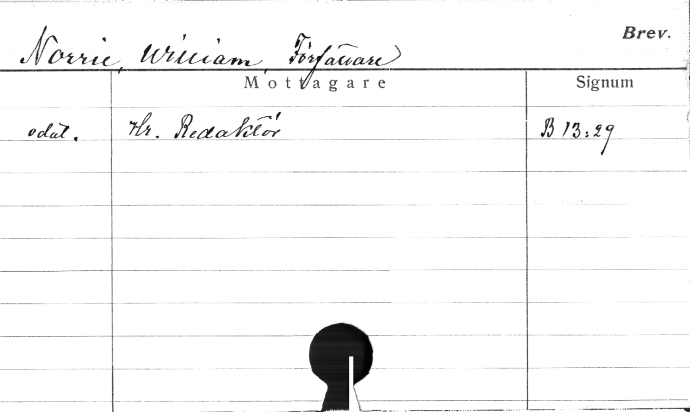 Brev.
Norrie, William, Författare
Mottagare Signum
odat. Hr. Redaktör B 13:29